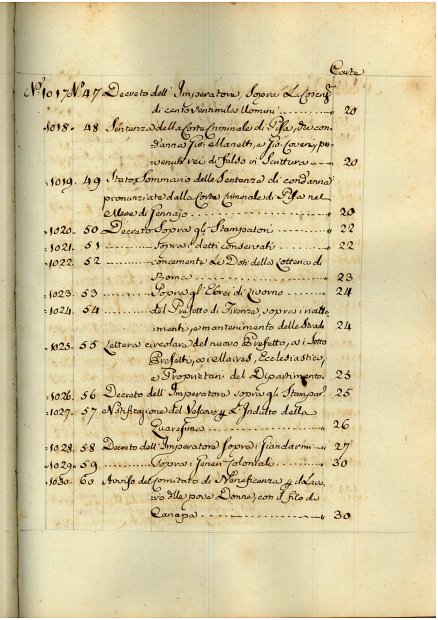 Carte
N.º 1017 N.º 47 Decreto dell' Imperatore, Sopra La Coscriz.e
di centoventimila Uomini 20
1018 48 Sentenza della Corte Criminale di Pisa, che con
danna Gio: Manetti, e Gio: Coveri, pre
venuti rei di falso in Scrittura 20
1019 49 Stato Sommario delle Sentenze di condanna
pronunziate dalla Corte Criminale di Pisa nel
Mese di Gennajo 20
1020 50 Decreto Sopra gli Stampatori 22
1021 51 Sopra i detti conservati 22
1022 52 concernente Le Doti della Lotteria di
Roma 23
1023 53 Sopra gl' Ebrei di Livorno 24
1024 54 del Prefetto di Firenze, sopra i riatta
menti, e mantenimento delle Strade 24
1025 55 Lettera circolare del nuovo Prefetto, a i Sotto
Prefetti, a i Maires, Ecclesiastici,
e Proprietari del Dipartimento 25
1026 56 Decreto dell' Imperatore sopra gli Stampat.i 25
1027 57 Notificazione del Vescovo p L'Indulto della
Quaresima 26
1028 58 Decreto dell' Imperatore Sopra i Giandarmi 27
1029 59 Sopra i Generi Coloniali 30
1030 60 Avviso del Comitato di Beneficenza p da Lavo
ro alle povere Donne, con il filo di
Canapa 30